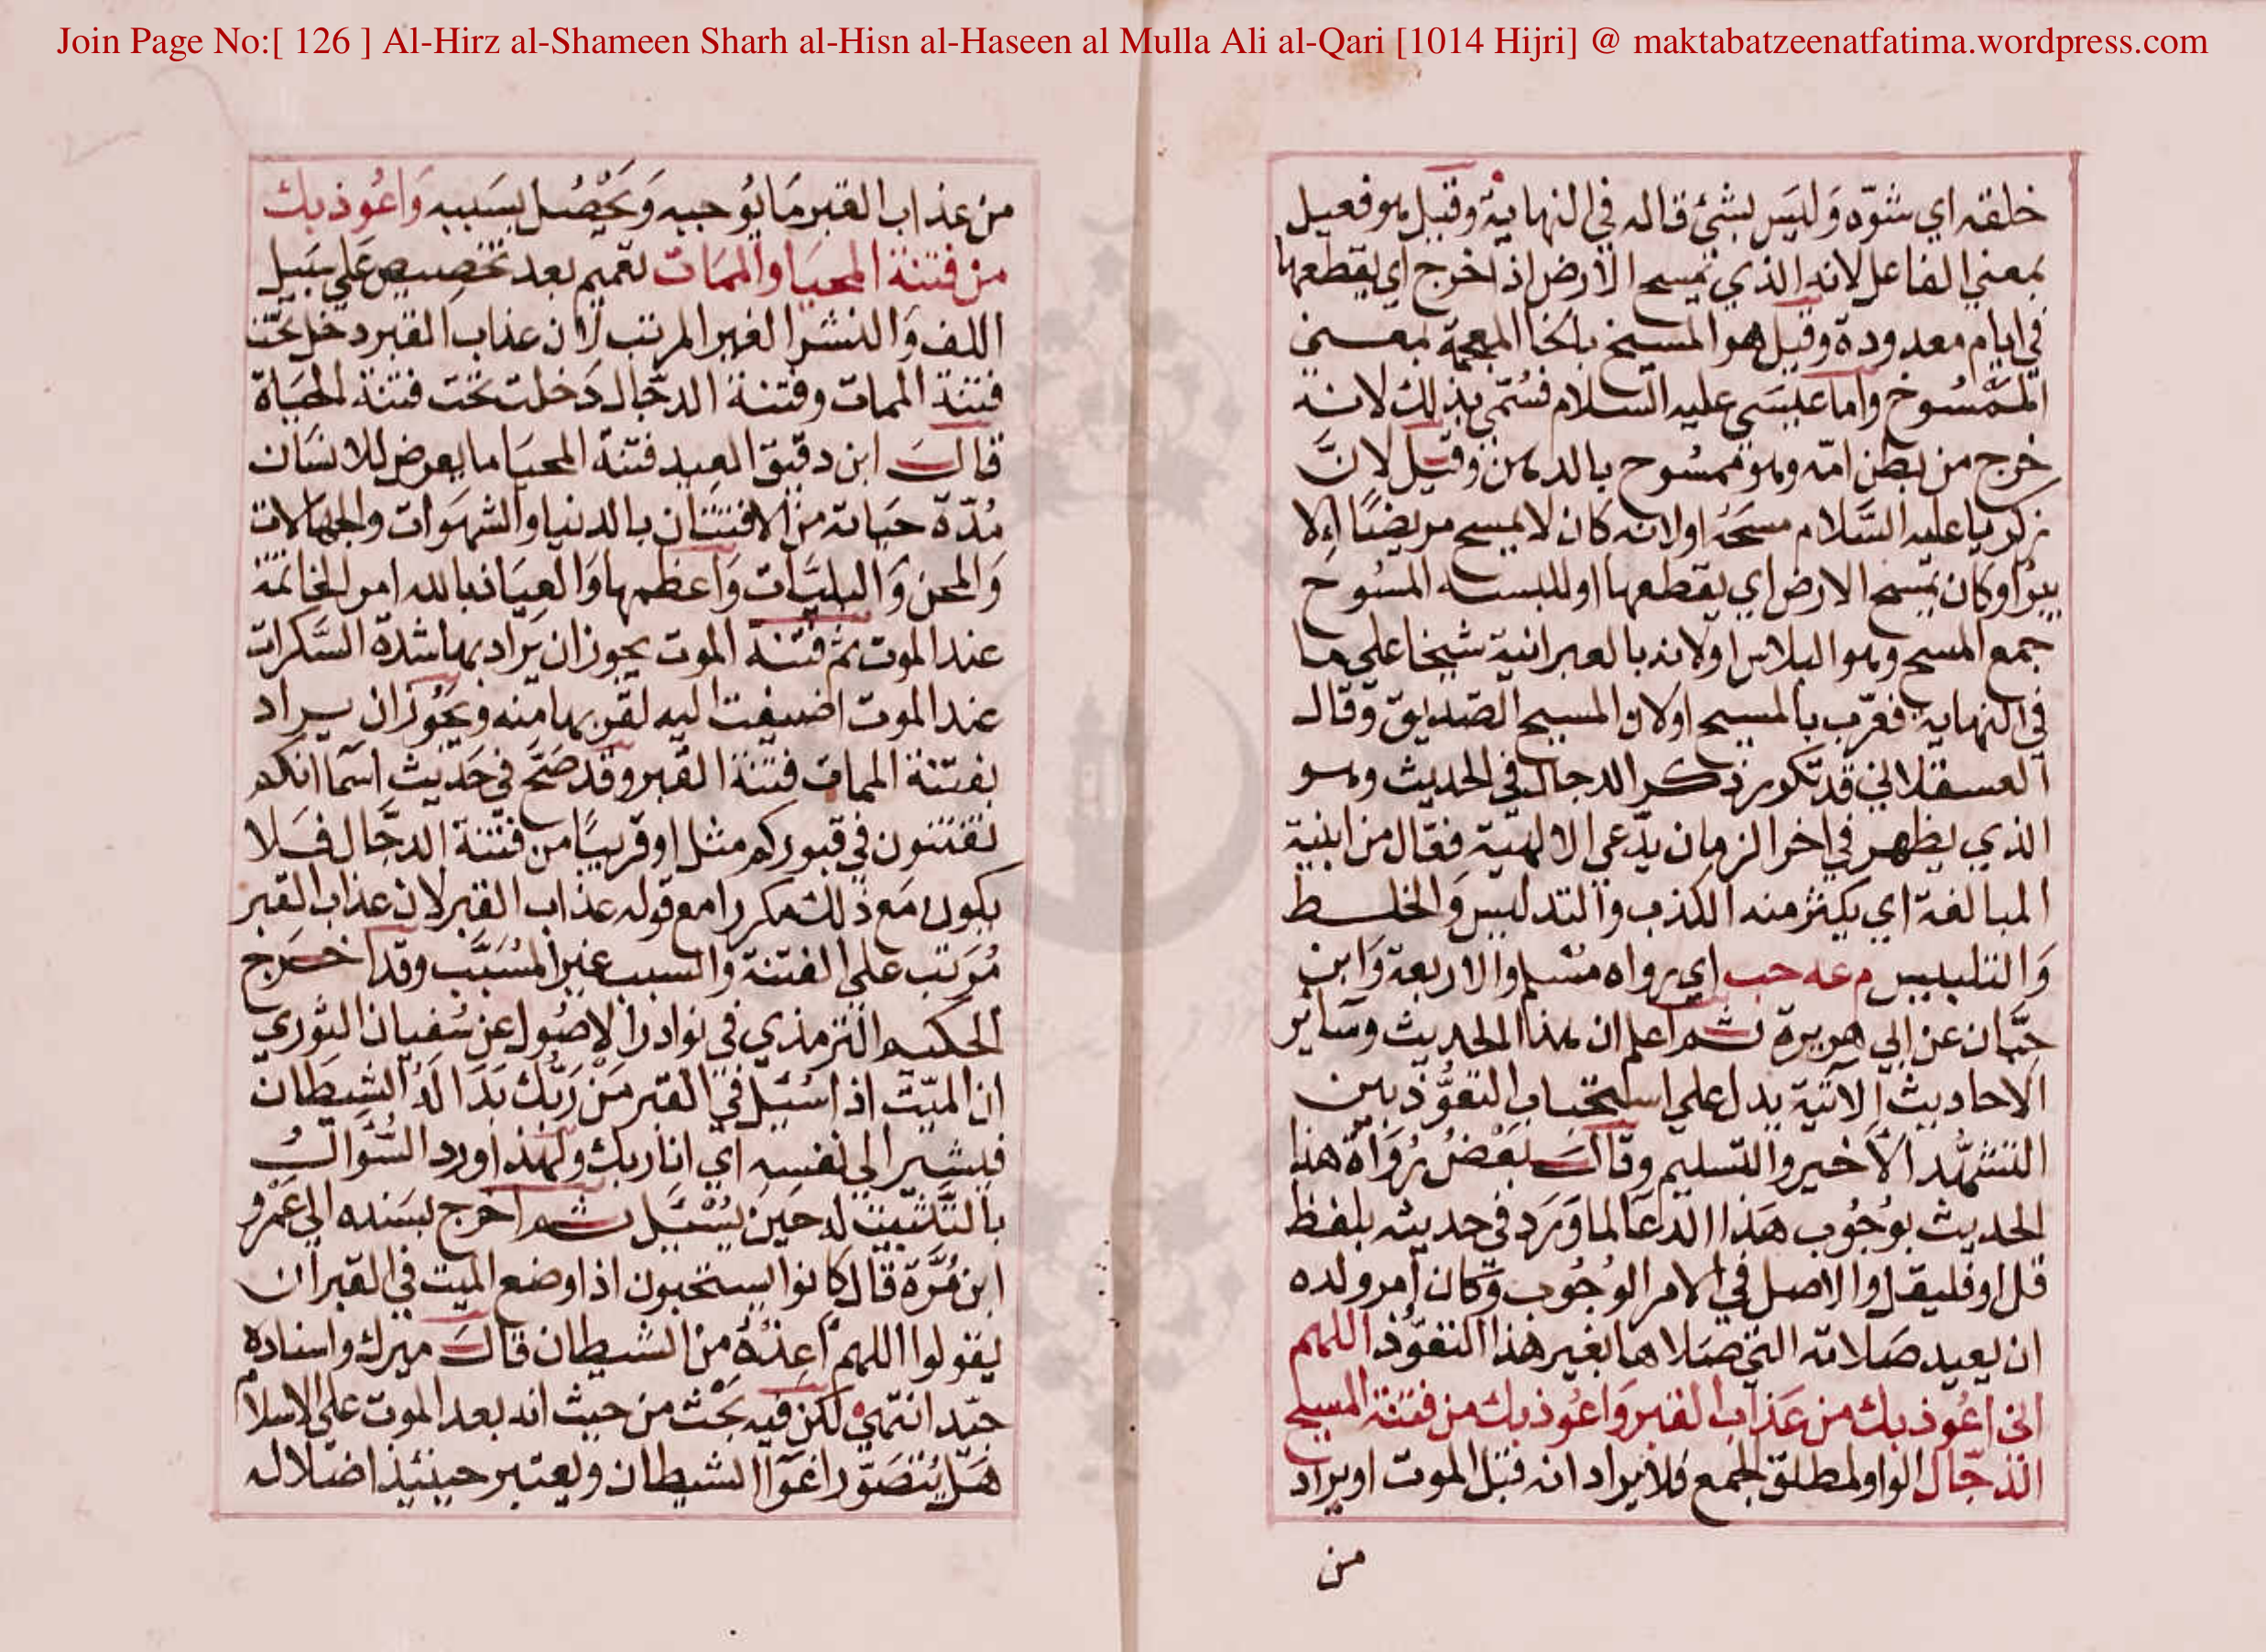 Join Page No:[ 126 ] Al-Hirz al-Shameen Sharh al-Hisn al-Haseen al Mulla Ali al-Qari [1014 Hijri] @ maktabatzeenatfatima.wordpress.com
خلقه اي شوّه وَليَس بشئ قاله في النهاية وقيل هو فعيل
بمعني الفاعل لانه الذي يمسح الارض اذا خرج اي يقطعها
في ايام معدودة وقيل هو المسيخ بالخا المعجمة بمعني
الممسُوخ واما عيسَي عليه السلام فسُمّي بذلك لانه
خرج من بطن امّه وهو ممسُوح بالدهن وقيل لانَّ
زكريا عليه السَّلام مسحَهُ او لانه كان لا يمسح مريضًا الا
يبرُا او كان يمسح الارض اي يقطعها او للبسه المسُوحَ
جمع المسح وهو البلاس او لانه بالعبرانية شيخا علي ما
في النهاية فعرّب بالمسيح او لان المسيح الصّديق وقال
العسقلاني قد تكرر ذكر الدجال في الحديث وهو
الذي يظهر في اخر الزمان يدّعي الالهيّة فعّال من ابنية
المبالغة اي يكثر منه الكذب والتدليس وَالخلط
وَالتلبيس م عه حب اي رواه مسْلم والاربعة وَابن
حبَّان عن ابي هريرة ثم اعلم ان هذا الحديث وسَاير
الاحاديث الآتية يدل علي استحباب التعوُّذ بين
التشهّد الاخير والتسليم وقالَ بَعْضُ رُوَاةُ هذا
الحديث بوُجُوب هَذا الدعَا لما وَرَد في حديثه بلفظ
قل او فليقل والاصل في الامر الوُجُوب وَكان أمر ولده
ان يعيد صَلاته التي صَلاها بغير هذا التعوّذ اللهم
اني اعُوذ بك من عَذاب القبر وَاعُوذ بك من فتنة المسيح
الدّجّال الواو لمطلق الجمع فلا يراد انه قبْل الموت او يراد
من
من عذاب القبر مَا يُوجبه وَيَحْصُل بسَببه وَاعُوذ بك
من فتنة المحيَا والممَات تعميم بعد تخصيص عَلي سَبيل
اللف وَالنشر الغير المرتب لان عذاب القبر دخل تحت
فتنة الممات وفتنة الدجّال دَخلت تحت فتنة الحيَاة
قالَ ابن دقيق العيد فتنة المحيَا ما يعرض للانسَان
مُدّة حيَاته من الافتتان بالدنيا والشهوَات والجهالات
وَالمحن وَالبليَّات وَاعظمها وَالعيَاذ بالله امر الخاتمة
عند الموت ثم فتنة الموت يجوز ان يراد بها شدة السَّكرات
عند الموت اضيفت اليه لقربها منه ويجُوز ان يراد
بفتنة الممات فتنة القبر وقد صَحَّ في حَديث اسمآ انكم
تفتنون في قبوركم مثل او قريبًا من فتنة الدجَّال فلا
يكون مَع ذلك مكررا مع قوله عذاب القبر لان عذاب القبر
مُرَتب علي الفتنة والسبب غير المُسَبَّب وقد اخرج
الحكيم الترمذي في نوادر الاصُول عن سُفيان الثوري
ان الميّت اذا سُئِل في القبر مَنْ رَبُّك بَدَا لَهُ الشيطَان
فيشير الي نفسه اي انا ربك ولهذا وَرد السُّوَالُ
بالتَّثبيْت له حيَن يُسْئَل ثم اخرج بسَنده الي عَمْرو
ابن مُرَّة قال كانوا يستحبون اذا وضع الميت في القبر ان
يقولوا اللهم أعِذْهُ من الشيطان قالَ ميرك واسناده
جيّد انتهي لكن فيه بَحْث من حيث انه بعد الموت علي الاسلام
هَل يُتصَوّر اغوَآ الشيطان ويعتبر حينئذ اضلاله